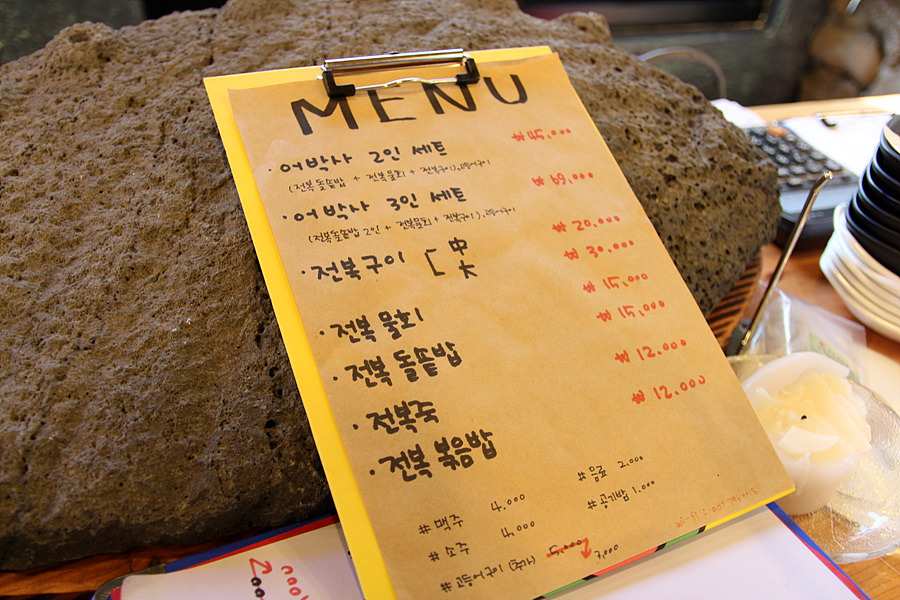 MENU
· 어박사 2인 세트 ₩45,000
(전복돌솥밥 + 전복물회 + 전복구이), 고등어구이
· 어박사 3인 세트 ₩69,000
(전복돌솥밥 2인 + 전복물회 + 전복구이), 고등어구이
· 전복구이 [ 中 ₩20,000
大 ₩30,000
· 전복 물회 ₩15,000
· 전복 돌솥밥 ₩15,000
· 전복죽 ₩12,000
· 전복 볶음밥 ₩12,000
#맥주 4,000 #음료 2,000
#소주 4,000 #공기밥 1,000
#고등어구이